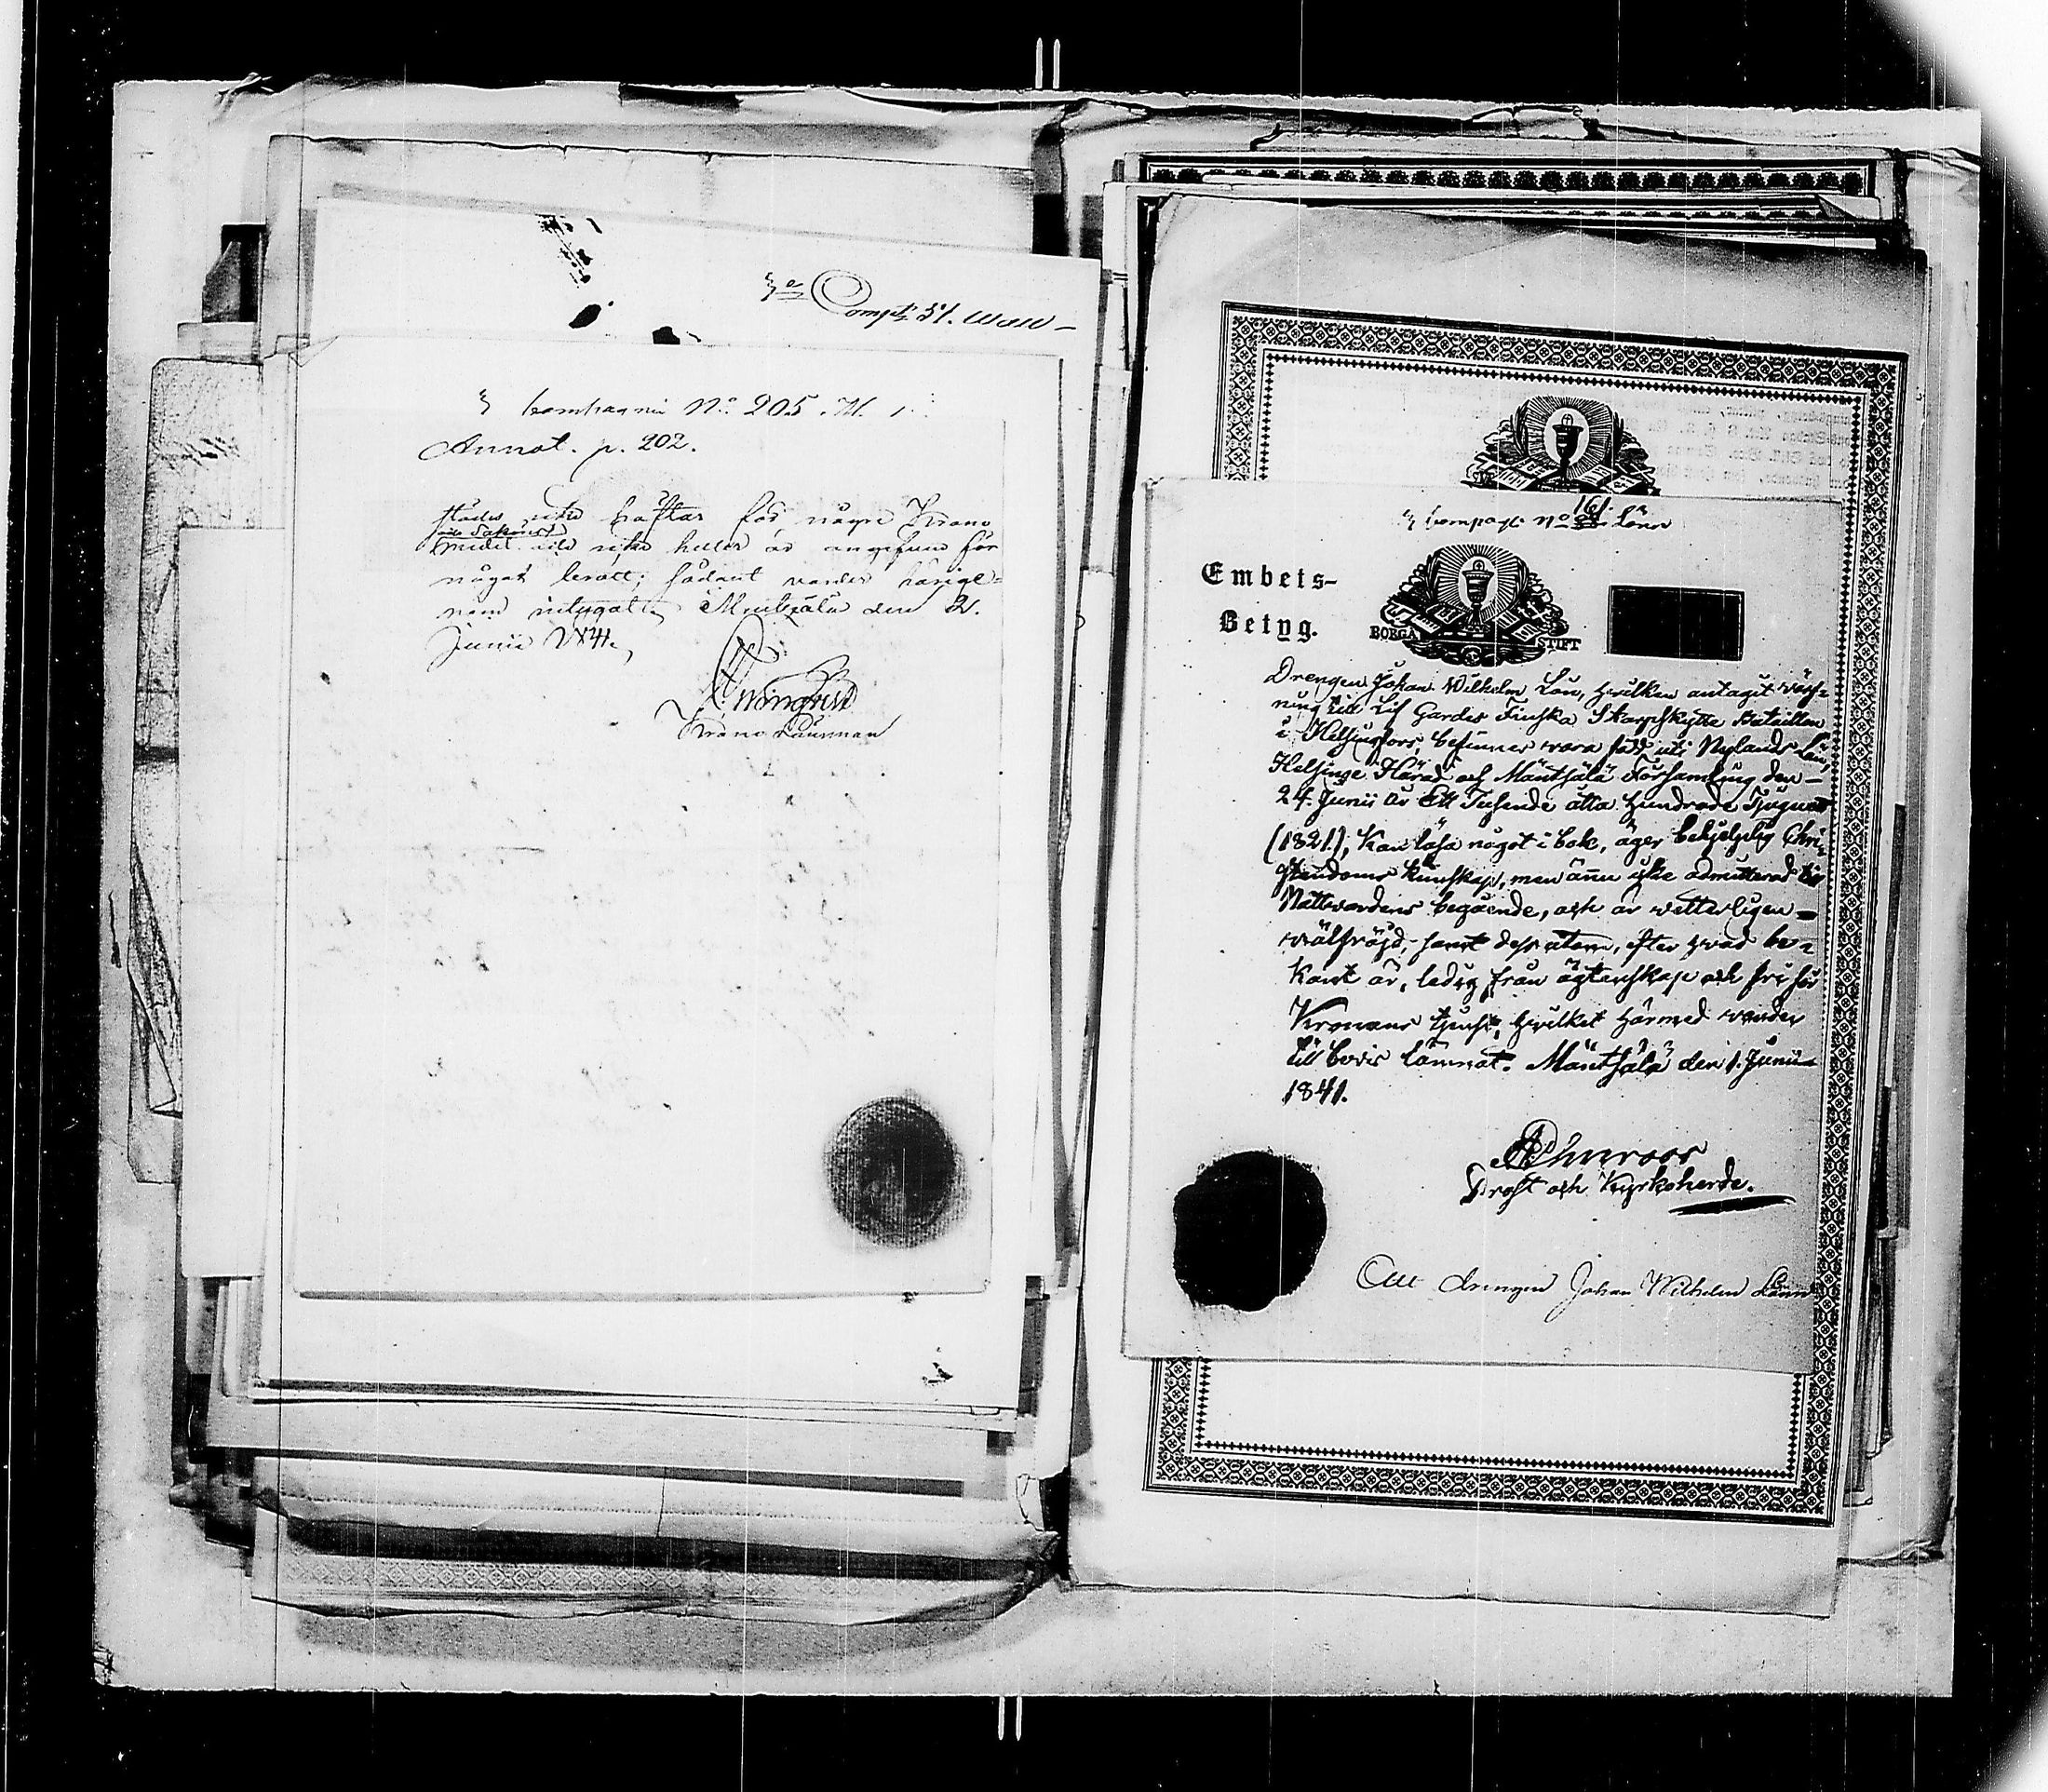 3e Comp: 51.
3 Compagnie No 205.
Annot. p. 202.
ike häftar för någre Krono
medel eller ike heller är angifven för
något brott; sådant varder härige-
nom intygat. Mäntzälä den 2.
Junii 1841.
Krono Länsman
161.
3 Compagn: No Lönn
Embets-
Betyg.
BORGÅ STIFT
Drengen Johan Wilhelm Lön, hvilken antagit värf-
ning till Lif Gardes Finska Skarpskytte Bataillon
i Helsingfors, befinnes vara född uti Nylands Län,
Helsinge Härad och Mäntsälä Församling den
24. Junii år Ett Tusende åtta Hundrade Tjuguett
(1821), Kan läsa något i bok, äger behjelplig Chri-
stendoms Kunskap, men ännu icke admitterad till
Nattvardens begående, och är vetterligen
välfräjd, samt dessutom, efter hvad be-
kant är, ledig från ägtenskap och fri för
Kronans tjenst, hvilket härmed varder
till bevis lämnat. Mäntsälä den 1. Junii
1841.
Prost och Kyrkoherde.
Att drengen Johan Wilhelm Lönn